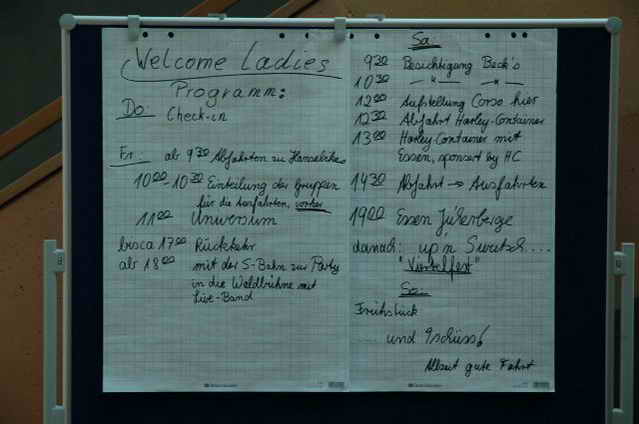 Welcome Ladies
Programm:
Do: Check-in
Fr. ab 9 30 Abfahrten zu Hansebikes
10 00 - 10 30 Einteilung der Gruppen
für die Ausfahrten, vorher
11 00 Universum
bis ca 17 00 Rückkehr
ab 18 00 mit der S-Bahn zur Party
in die Waldbühne mit
Live-Band
Sa.
9 30 Besichtigung Beck's
10 30 - " - - " -
12 00 Aufstellung Corso hier
12 30 Abfahrt Harley-Container
13 00 Harley-Container mit
Essen, sponsert by HC
14 30 Abfahrt → Ausfahrten
19 00 Essen
danach: up'n Swutsch....
"Viertelfest"
So:
Frühstück
... und Tschüss!
Allzeit gute Fahrt